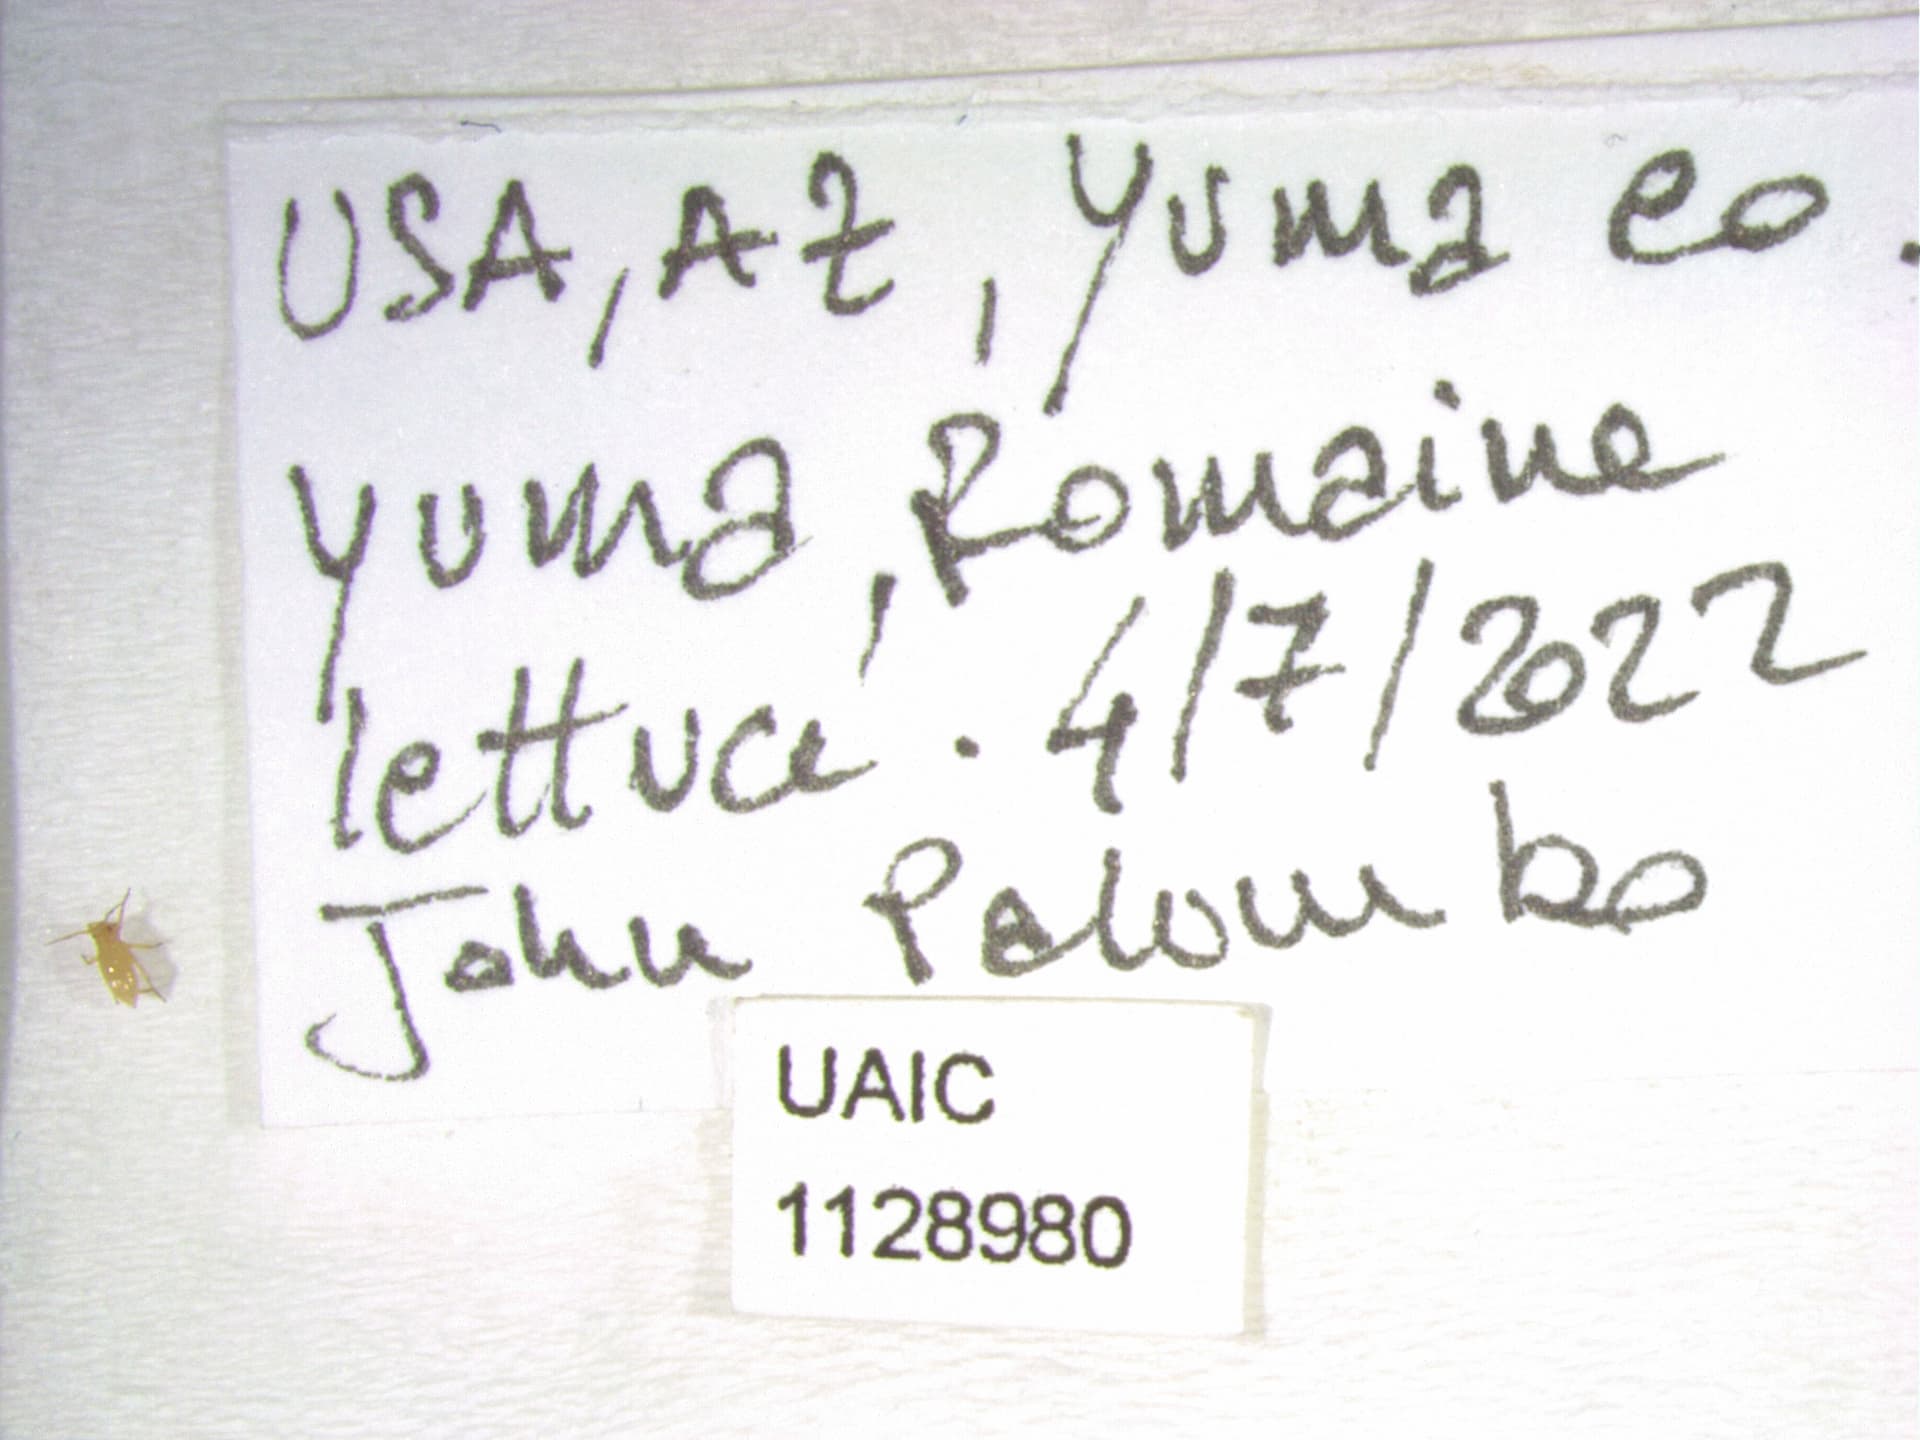 USA, AZ, Yuma Co.
Yuma, Romaine
lettuce. 4/7/2022
John Palumbo
UAIC
1128980